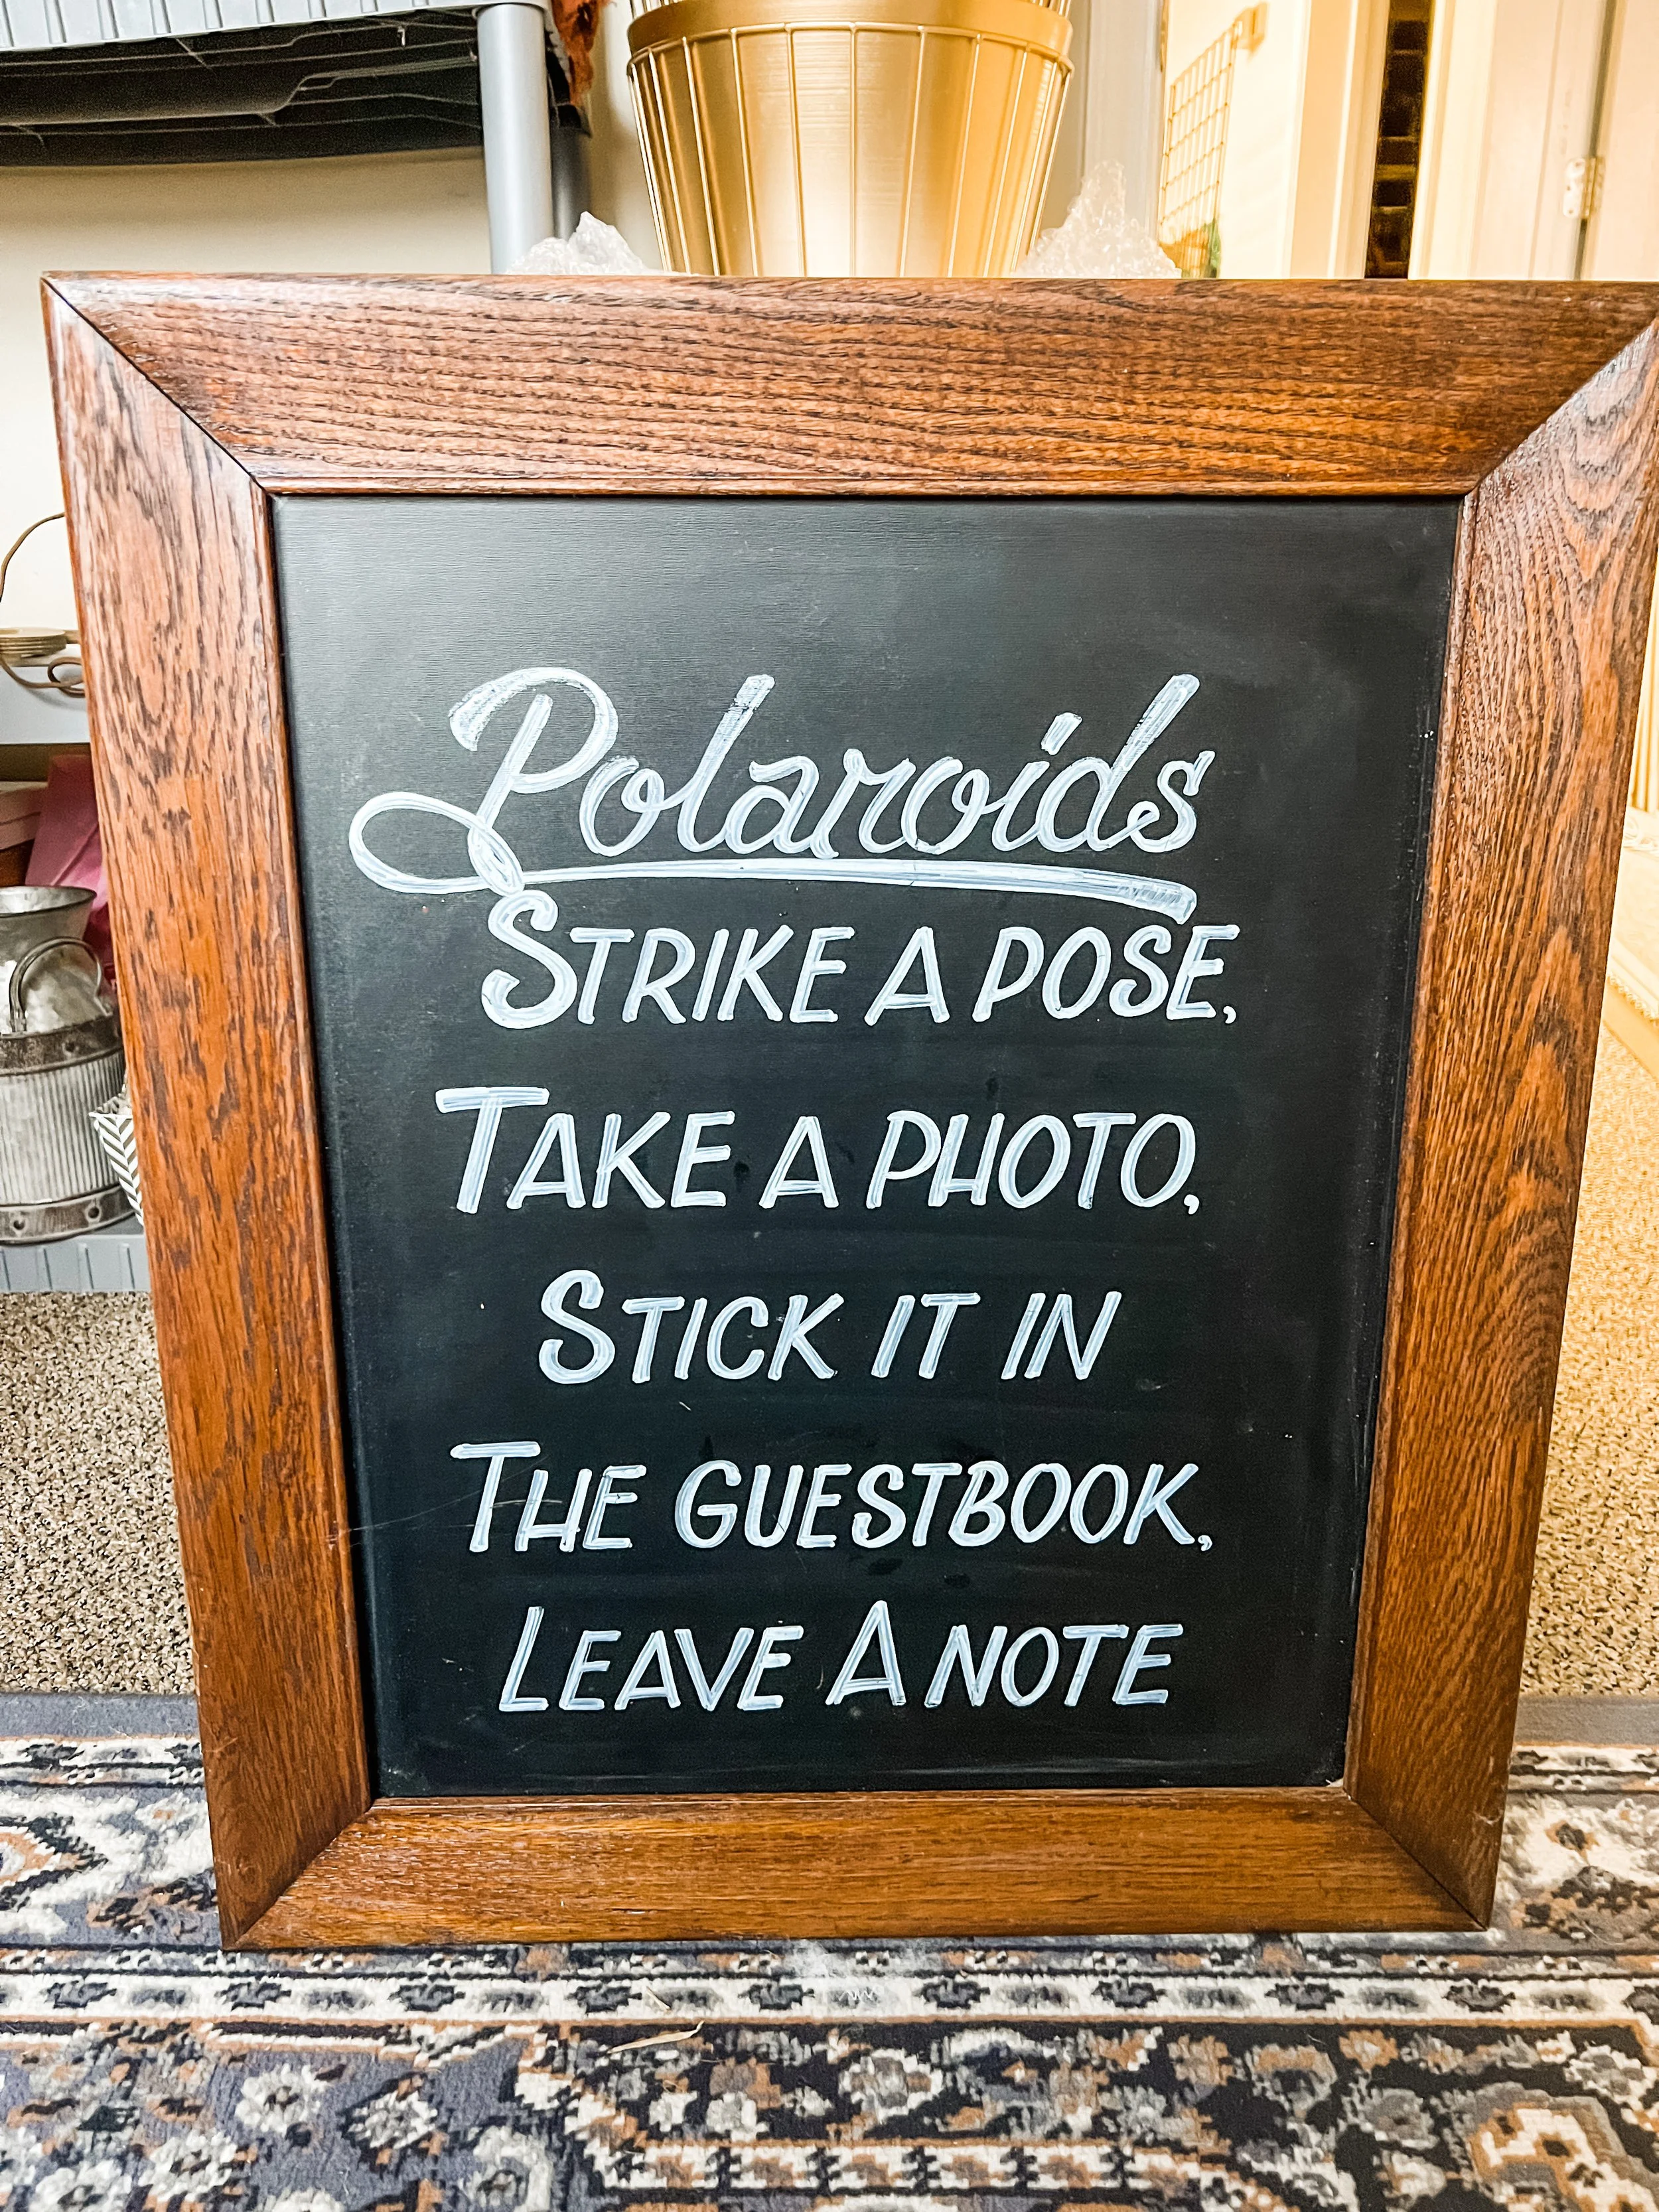 Polaroids
STRIKE A POSE,
TAKE A PHOTO,
STICK IT IN
THE GUESTBOOK,
LEAVE A NOTE